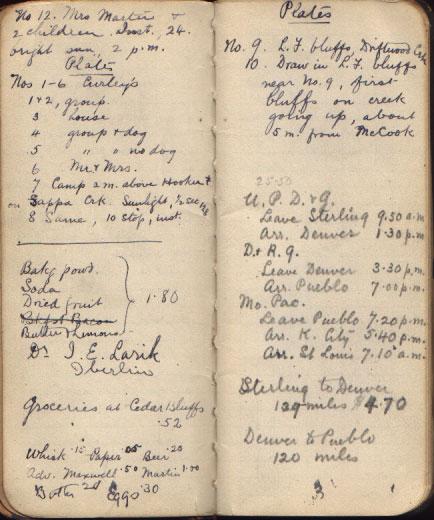 No 12. Mrs Martin +
2 children. Inst., 24.
bright sun, 2 p.m.
Plates
Nos 1-6 Curley's
1+2, group.
3 house
4 group + dog
5 " " no dog
6 Mr + Mrs.
7 Camp 2 m. above Hooker +
on Sappa Crk. Sunlight, ½ sec
8 Same, 10 stop, inst.
Bakg powd.
Soda
Dried fruit
Bkfst Bacon
Butter + Lemons
1.80
Dr. J. E. Larik
Oberlin
Groceries at Cedar Bluffs
.52
Whisk .15 Paper .05 Beer .20
Adv. Maxwell .50 Martin 1.00
Botta 20 Eggs .30
Plates
No. 9. L.F. bluffs, Driftwood Crk
10. Draw in L.F. bluffs
near No. 9, first
bluffs on creek
going up, about
5 m. from McCook
25.50
U. P. D. + G.
Leave Sterling 9.50 a.m.
Arr. Denver 1.30 p.m.
D. + R. G.
Leave Denver 3.30 p.m.
Arr. Pueblo 7.00 p.m.
Mo. Pac.
Leave Pueblo 7.20 p.m.
Arr. K. City 5.40 p.m.
Arr. St Louis 7.10 a.m.
Sterling to Denver
139 miles $4.70
Denver to Pueblo
120 miles
3